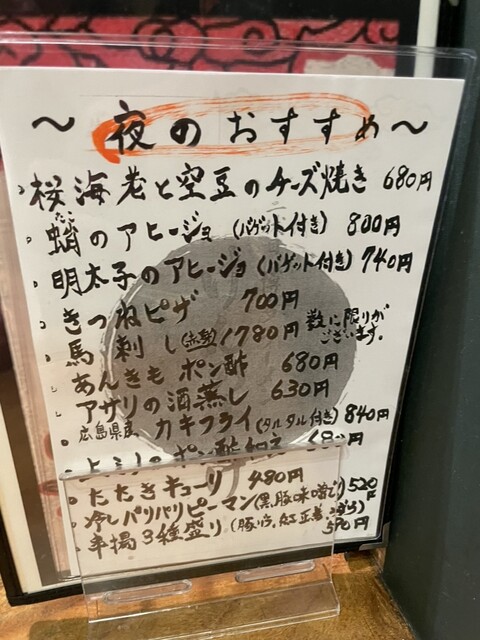 〜夜のおすすめ〜
桜海老と空豆のチーズ焼き 680円
蛸のアヒージョ (バゲット付き) 800円
明太子のアヒージョ (バゲット付き) 740円
きつねピザ 700円
馬刺し(赤身)1780円 数に限りがございます。
あんきもポン酢 680円
アサリの酒蒸し 630円
広島県産 カキフライ (タルタル付き) 840円
ポン酢和え 680円
たたきキューリ 480円
冷しパリパリピーマン(黒豚味噌で)520円
串揚3種盛り 570円